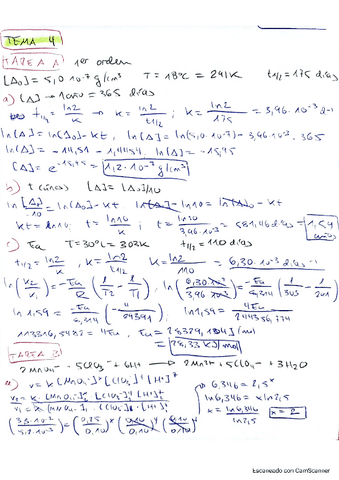 TEMA 4
TAREA A 1er orden
[A]₀ = 5,0·10⁻⁷ g/cm³ T = 18ºC = 291K t1/2 = 175 días
a) [A] → 1 año = 365 días
t1/2 = ln2/k → k = ln2/t1/2 ; k = ln2/175 = 3,96·10⁻³ d⁻¹
ln[A] = ln[A]₀ - kt, ln[A] = ln(5,0·10⁻⁷) - 3,96·10⁻³·365
ln[A] = -14,51 - 1,4454 ln[A] = -15,95
[A] = e^-15,95 = 1,2·10⁻⁷ g/cm³
b) t (años) [A] = [A]₀/10
ln [A]₀/10 = ln[A]₀ - kt ln[A]₀ - ln10 = ln[A]₀ - kt
kt = ln10; t = ln10/k ; t = ln10/3,96·10⁻³ = 581,46 días = 1,59 años
c) Ea T = 30ºC = 303K t1/2 = 110 días
t1/2 = ln2/k, k = ln2/t1/2 k = ln2/110 = 6,30·10⁻³ días⁻¹
ln(k2/k1) = -Ea/R (1/T2 - 1/T1) ln(6,30·10⁻³/3,96·10⁻³) = -Ea/8,314 (1/303 - 1/291)
ln 1,59 = -Ea/8,314 ( ) ln 1,59 =
= Ea, Ea = J/mol
= 28,33 kJ/mol
TAREA
2MnO₄⁻ + 5ClO₃⁻ + 6H⁺ → 2Mn²⁺ + 5ClO₄⁻ + 3H₂O
a) v = k [MnO₄⁻]ˣ [ClO₃⁻]ʸ [H⁺]ᶻ
v2/v1 = k·[MnO₄⁻]ˣ·[ClO₃⁻]ʸ·[H⁺]ᶻ / k·[MnO₄⁻]ˣ·[ClO₃⁻]ʸ·[H⁺]ᶻ
= (0,25/0,10)ˣ (0,10/0,10)ʸ (0,10/0,10)ᶻ
6,346 = 2,5ˣ
ln6,346 = x ln2,5
x = ln6,346/ln2,5 x = 2
Escaneado con CamScanner